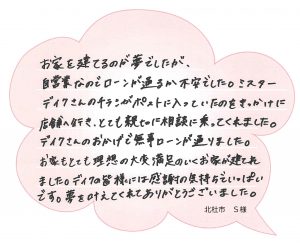 お家を建てるのが夢でしたが、
自営業なのでローンが通るか不安でした。ミスター
デイクさんのチラシがポストに入っていたのをきっかけに
店舗へ行き、とても親切に相談に乗ってくれました。
デイクさんのおかげで無事ローンが通りました。
お家もとても理想の大変満足のいくお家が建てれ
ました。デイクの皆様には感謝の気持ちでいっぱい
です。夢を叶えてくれてありがとうございました。
北杜市 S様